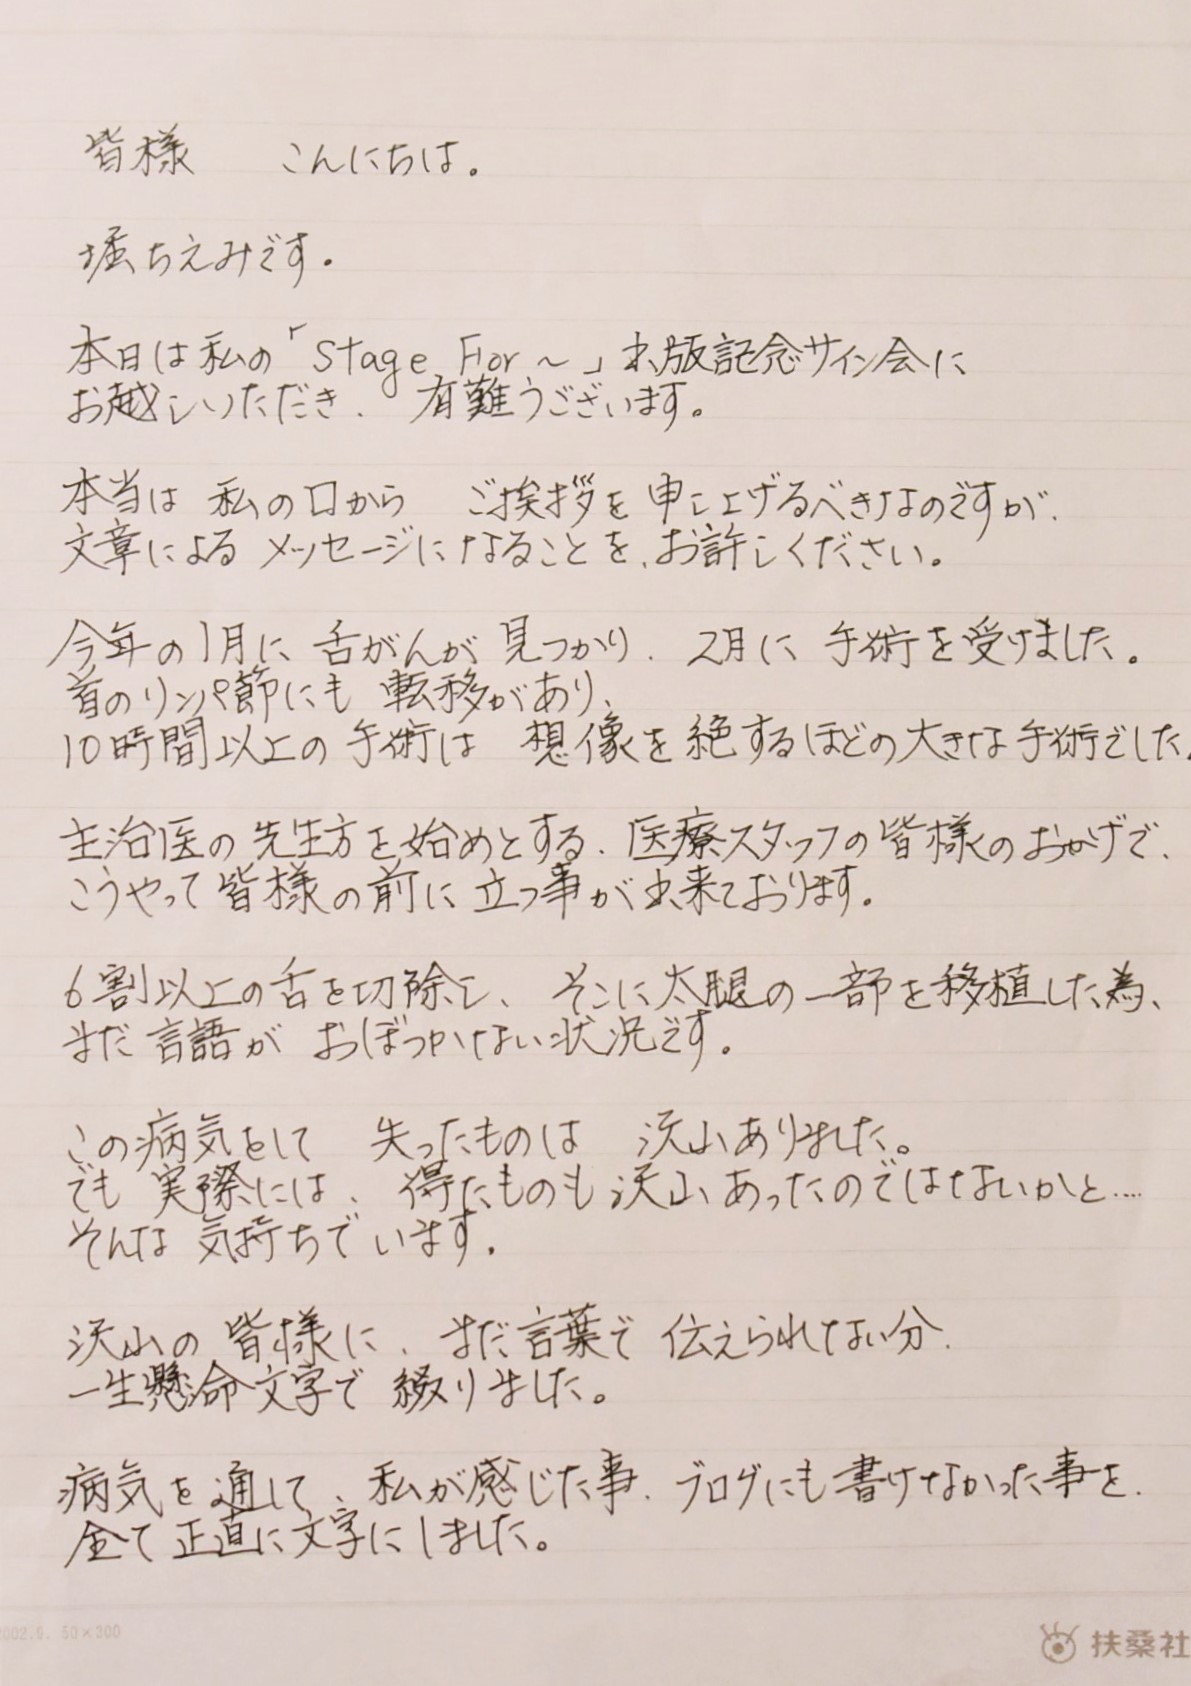 皆様　こんにちは。
堀ちえみです。
本日は私の「Stage For～」出版記念サイン会に
お越しいただき、有難うございます。
本当は 私の口から　ご挨拶を 申し上げるべきなのですが、
文章による メッセージになることを、お許しください。
今年の1月に、舌がんが 見つかり、2月に 手術を受けました。
首のリンパ節にも 転移があり、
10時間以上の 手術は 想像を絶するほどの大きな手術でした。
主治医の 先生方を始めとする、医療スタッフの皆様のおかげで、
こうやって皆様の前に 立つ事が出来ております。
6割以上の舌を切除し、そこに太腿の一部を移植した為、
まだ 言語が おぼつかない状況です。
この病気をして　失ったものは　沢山ありました。
でも 実際には、得たものも 沢山あったのではないかと....
そんな 気持ちでいます。
沢山の 皆様に、まだ言葉で 伝えられてない分、
一生懸命文字で 綴りました。
病気を通して、私が感じた事、ブログにも書けなかった事を、
全て 正直に文字にしました。
2002.9. 50×300
扶桑社